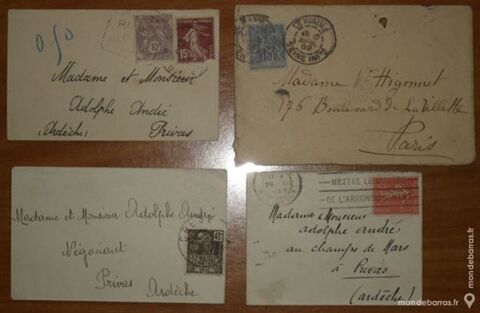 050
15c
Madame et Monsieur
Adolphe André
(Ardèche) Privas
LE HAVRE
SEINE INFRE
15
Madame Ve Higonnet
176 Boulevard de La Villette
Paris
Madame et Monsieur Adolphe André
Négociant
Privas
Ardèche
METTRE LE
DE L'ARRONDISSEMENT
Madame & Monsieur
adolphe andré
au champs de Mars
à Privas
(ardèche)
mondebarras.fr
mondebarras.fr